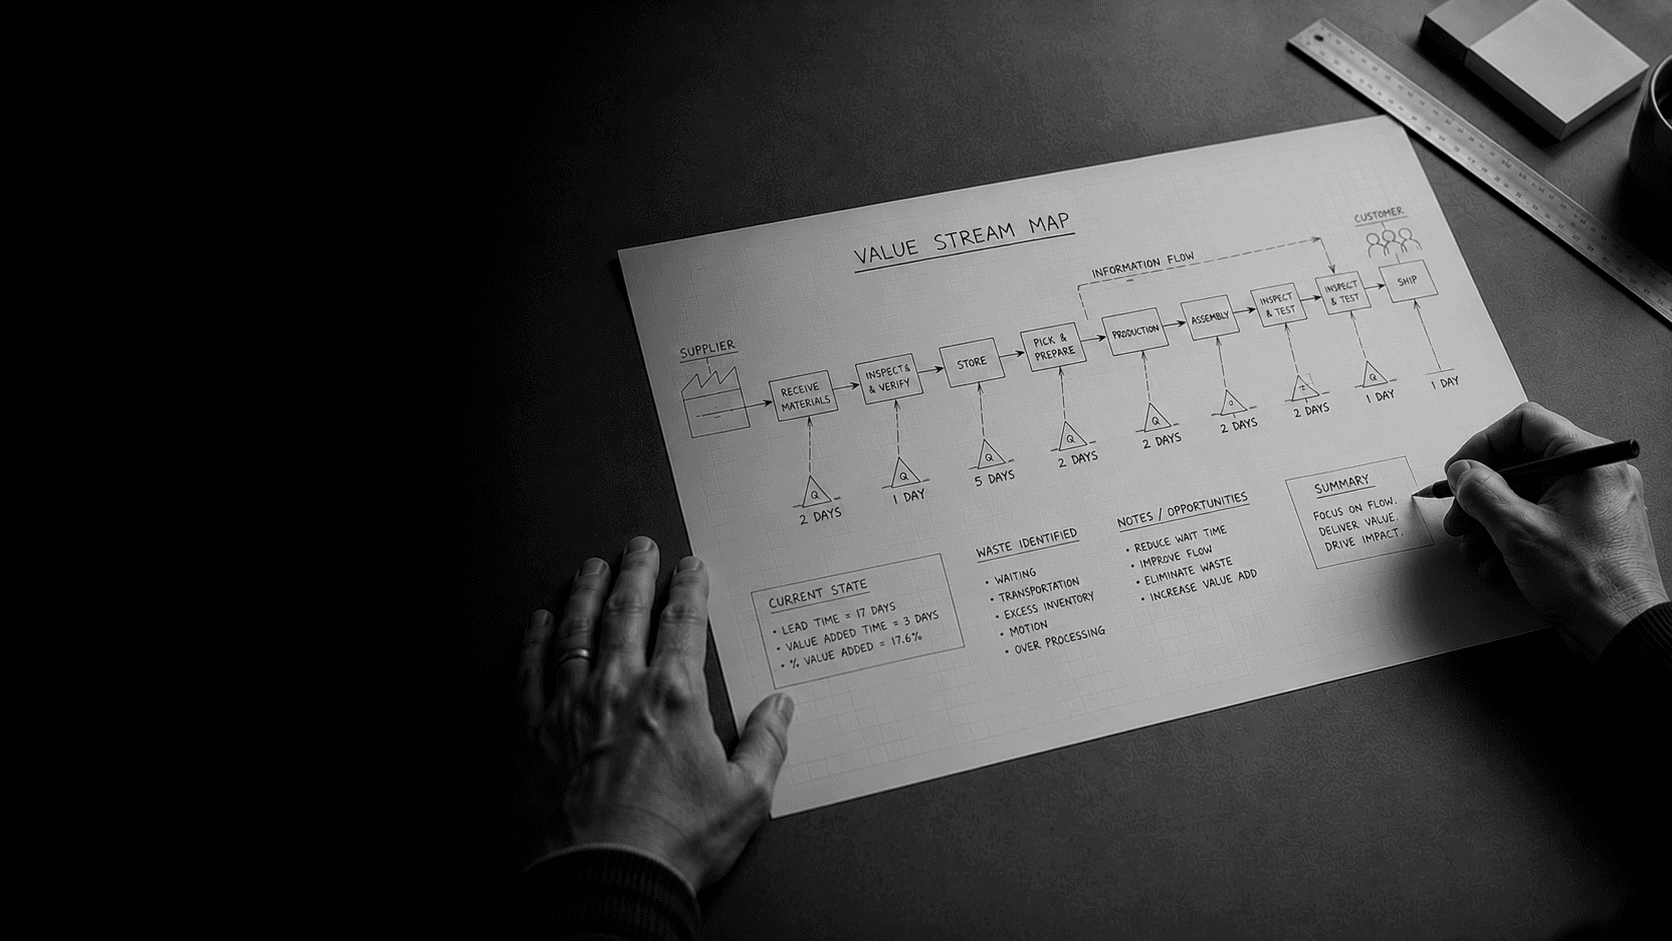 VALUE STREAM MAP
CUSTOMER
INFORMATION FLOW
SUPPLIER
RECEIVE
MATERIALS
INSPECT &
& VERIFY
STORE
PICK &
PREPARE
PRODUCTION
ASSEMBLY
INSPECT
& TEST
INSPECT
& TEST
SHIP
Q
2 DAYS
Q
1 DAY
Q
5 DAYS
Q
2 DAYS
Q
2 DAYS
2 DAYS
2 DAYS
Q
1 DAY
1 DAY
CURRENT STATE
• LEAD TIME = 17 DAYS
• VALUE ADDED TIME = 3 DAYS
• % VALUE ADDED = 17.6%
WASTE IDENTIFIED
• WAITING
• TRANSPORTATION
• EXCESS INVENTORY
• MOTION
• OVER PROCESSING
NOTES / OPPORTUNITIES
• REDUCE WAIT TIME
• IMPROVE FLOW
• ELIMINATE WASTE
• INCREASE VALUE ADD
SUMMARY
FOCUS ON FLOW.
DELIVER VALUE.
DRIVE IMPACT.